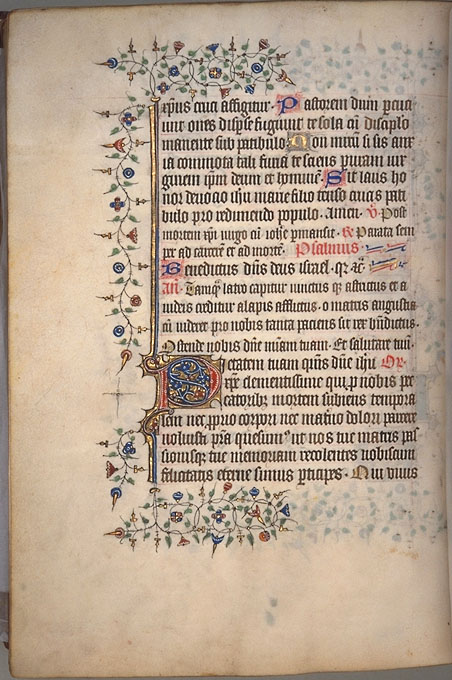 xp̄us cruci affigitur. Pastorem dum percu
iunt oves disp̄se fugiunt te sola cū disciplo
manente sub patibulo. Non mirū si sis anx
ia cōmota tali furia te sciens puram vir
ginem
deum et hominē. Sit laus ho
nor devocio ih̄u marie filio tenso crucis pati
bulo pro redimendo populo. Amen. V̄ Post
mortem xp̄i virgo cū ioh̄e p̄mansit. R̄ Parata sem
per ad carcerē et ad mortē. Psalmus
Benedictus dn̄s deus israel. q̄z ꝛc̄.
An̄. Tamq̄ latro capitur vinctus
astrictus et a
iudeis creditur alapis afflictus. o matris angustia
cū videret pro nobis tanta paciens sit rex b̄ndictus.
Ostende nobis dn̄e miam tuam. Et salutare tuū.
tuam
dn̄e ih̄u Or̄.
xp̄e clementissime qui p̄ nobis pec
catoribz mortem subiens tempora
lem nec p̄prio corpori nec matris dolori parcere
voluisti p̄sta quesumꝰ ut nos tue matris pas
sionisqz tue memoriam recolentes nobiscum
felicitatis eterne simus p̄ticipes. Qui vivis